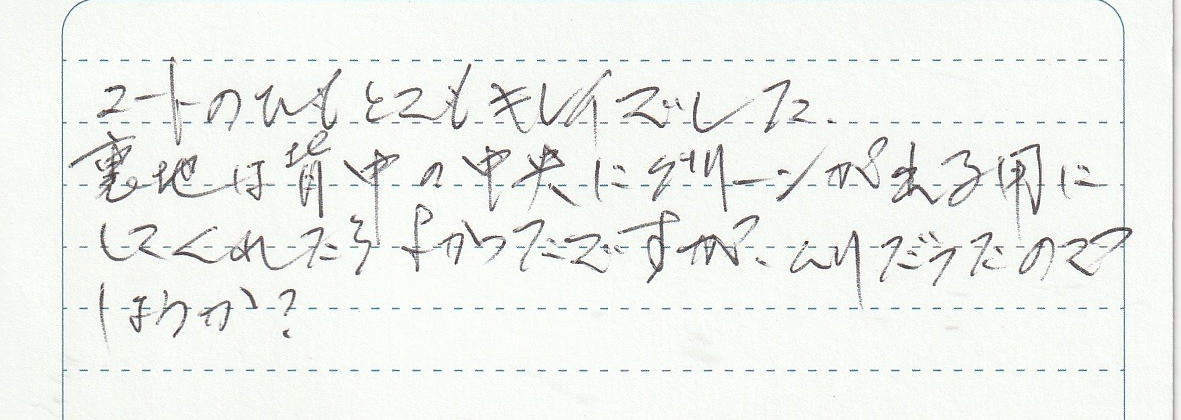 コートのひもとてもキレイでした.
裏地は背中の中央にグリーンが来る用に
してくれたらよかったですが、ムリだったのでつ
ほうか?